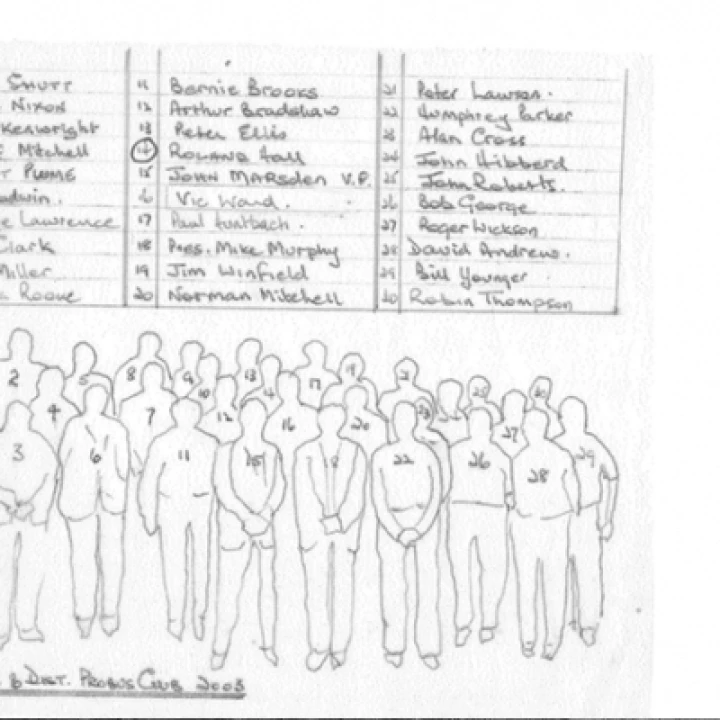 Shutt 11 Bernie Brooks 21 Peter Lawson.
Nixon 12 Arthur Bradshaw 22 Humphrey Parker
kenwright 13 Peter Ellis 23 Alan Cross
Mitchell 14 Roland Hall 24 John Hibberd
T PLUME 15 JOHN MARSDEN V.P. 25 John Roberts.
odwin. 16 Vic Ward. 26 Bob George
e Lawrence 17 Paul 27 Roger Wickson
Clark 18 Pres. Mike Murphy 28 David Andrew.
Miller 19 Jim Winfield 29 Bill Younger
Roove 20 Norman Mitchell 30 Robin Thompson
2 5 8 9 10 13 17 19 21
4 7 12 16 20 23 25 27
3 6 11 15 18 22 26 28 29
& DIST. PROBUS CLUB 2003